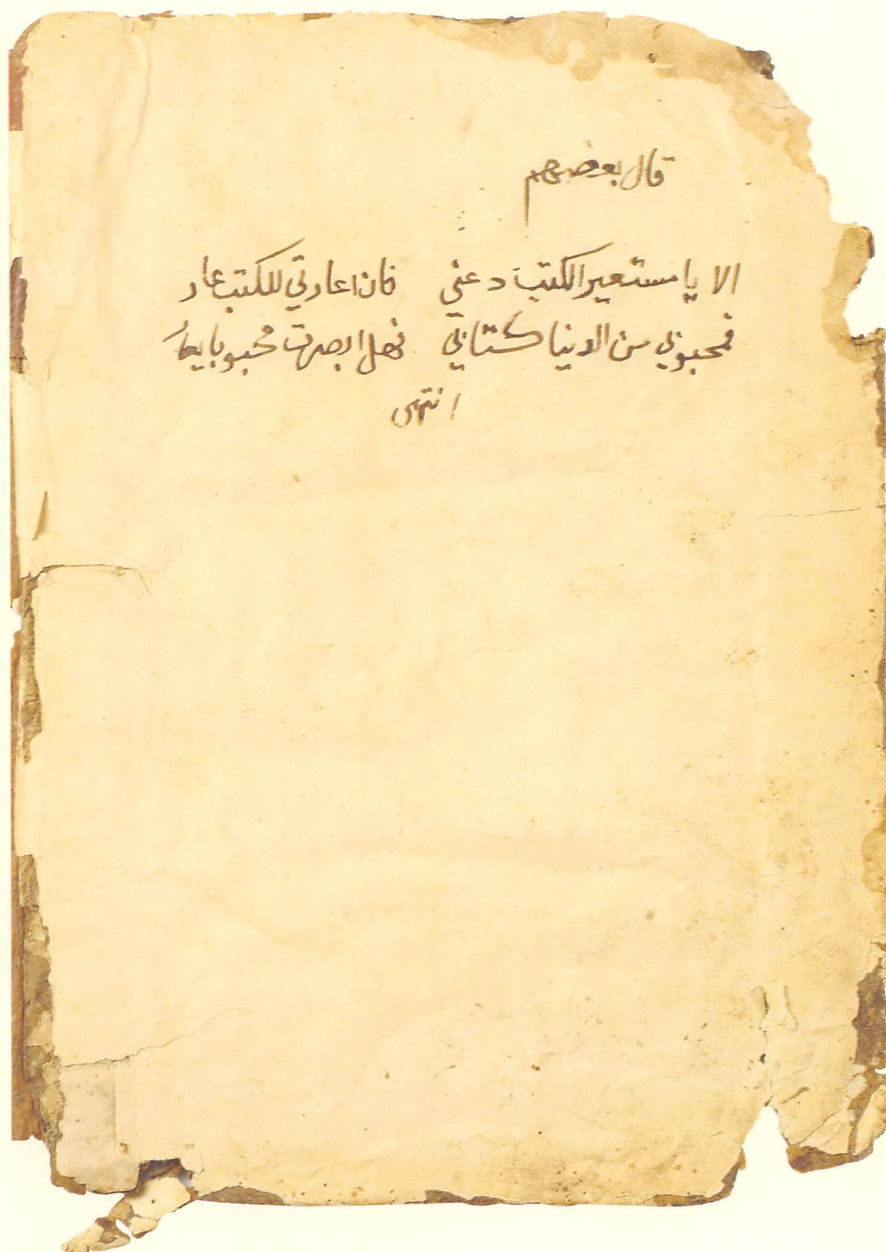 قال بعضهم
الا يا مستعير الكتب دعني فان اعارتي للكتب عار
فمحبوبي من الدنيا كتابي فهل ابصرت محبوبا يعار
انتهى